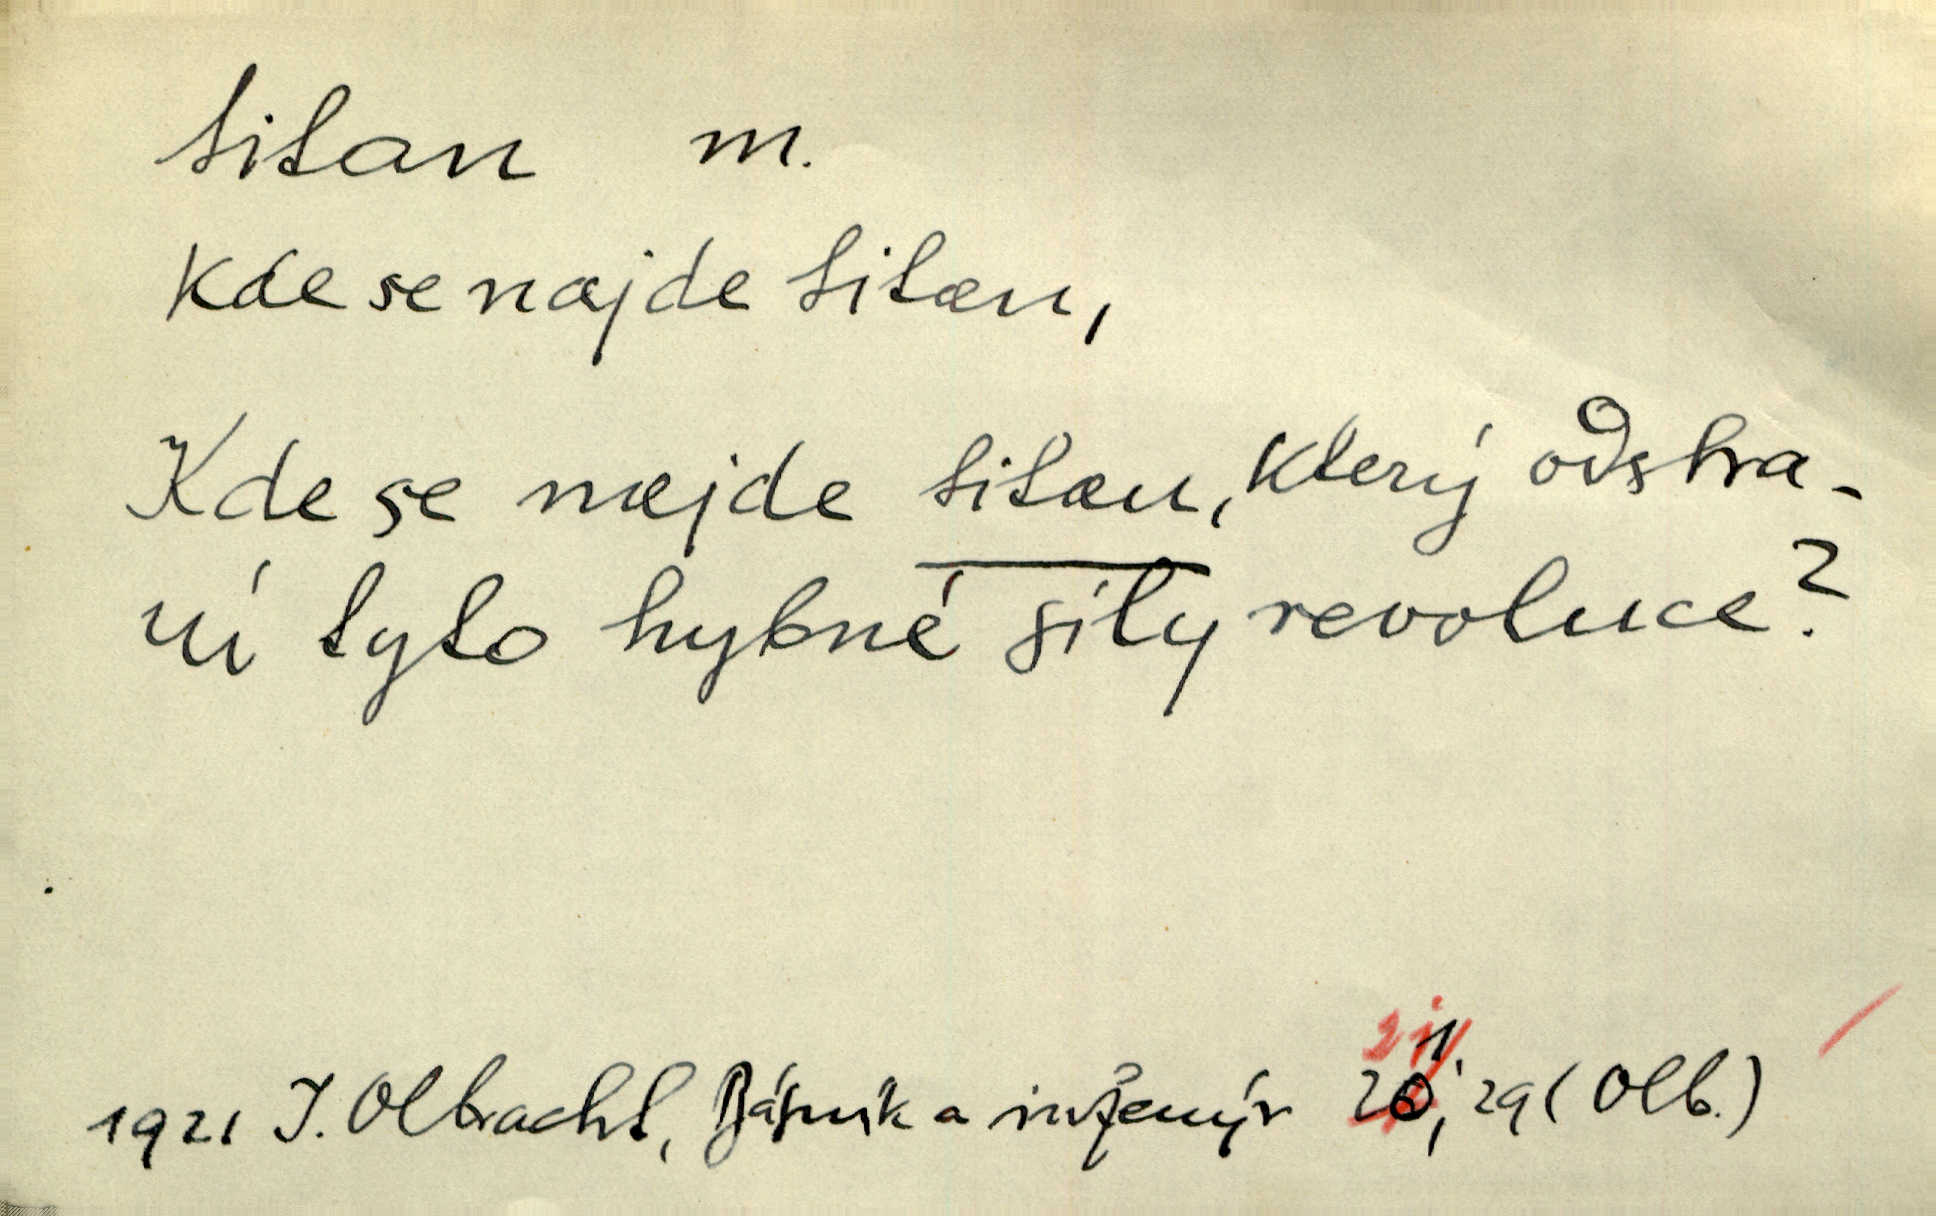 titan m.
Kde se najde titan,
Kde se najde titan, který odstra-
ní tyto hybné síly revoluce?
21
1921 I. Olbracht, Básník a inženýr 26, 29 (Olb.)